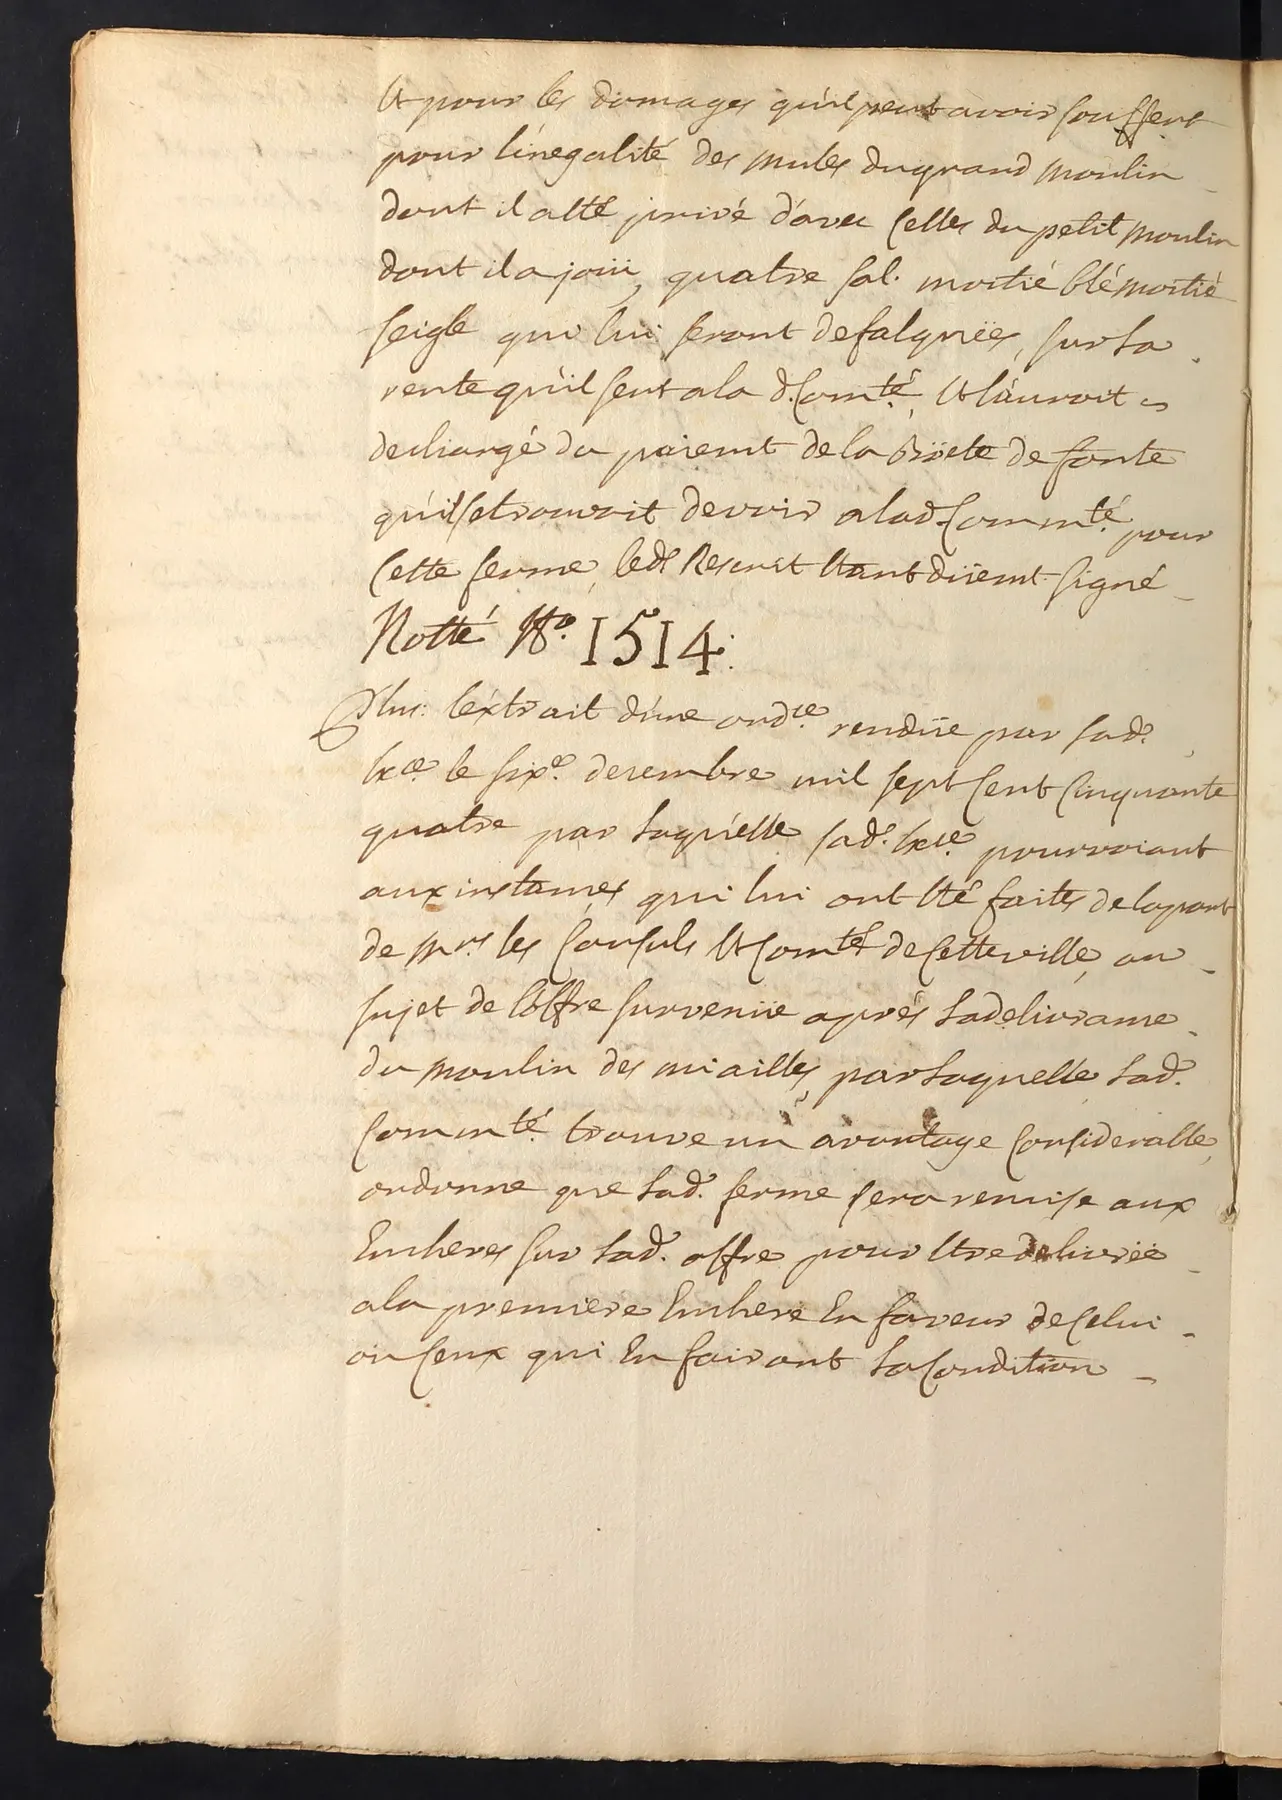 Et pour les domages qu'il peut avoir souffert
pour l'inegalité des mules du grand moulin
dont il a été privé d'avec celles du petit moulin
dont il a joüi, quatre sal. moitié blé moitié
seigle qui lui seront defalquées, sur la
rente qu'il sert a la d. Comté, et l'auroit
dechargé du paiemt de la piéce de fonte
qu'il se trouvoit devoir a lad. Commté pour
cette ferme, led. Rescrit étant düemt signé
Notté No. 1514:
Plus: l'extrait d'une ordce rendüe par sad.
Exce le sixe decembre mil sept cent cinquante
quatre par laquelle sad. Exce pourvoiant
aux instances qui lui ont été faites de la part
de Mrs les Consuls et Comté de cette ville, au
sujet de l'offre survenüe aprés la delivrance
du moulin des miailles, par laquelle lad.
Commté trouve un avantage considerable,
ordonne que lad. ferme sera remise aux
Encheres sur lad. offre pour être delivrée
a la premiere Enchere En faveur de celui
ou ceux qui En fairont la condition